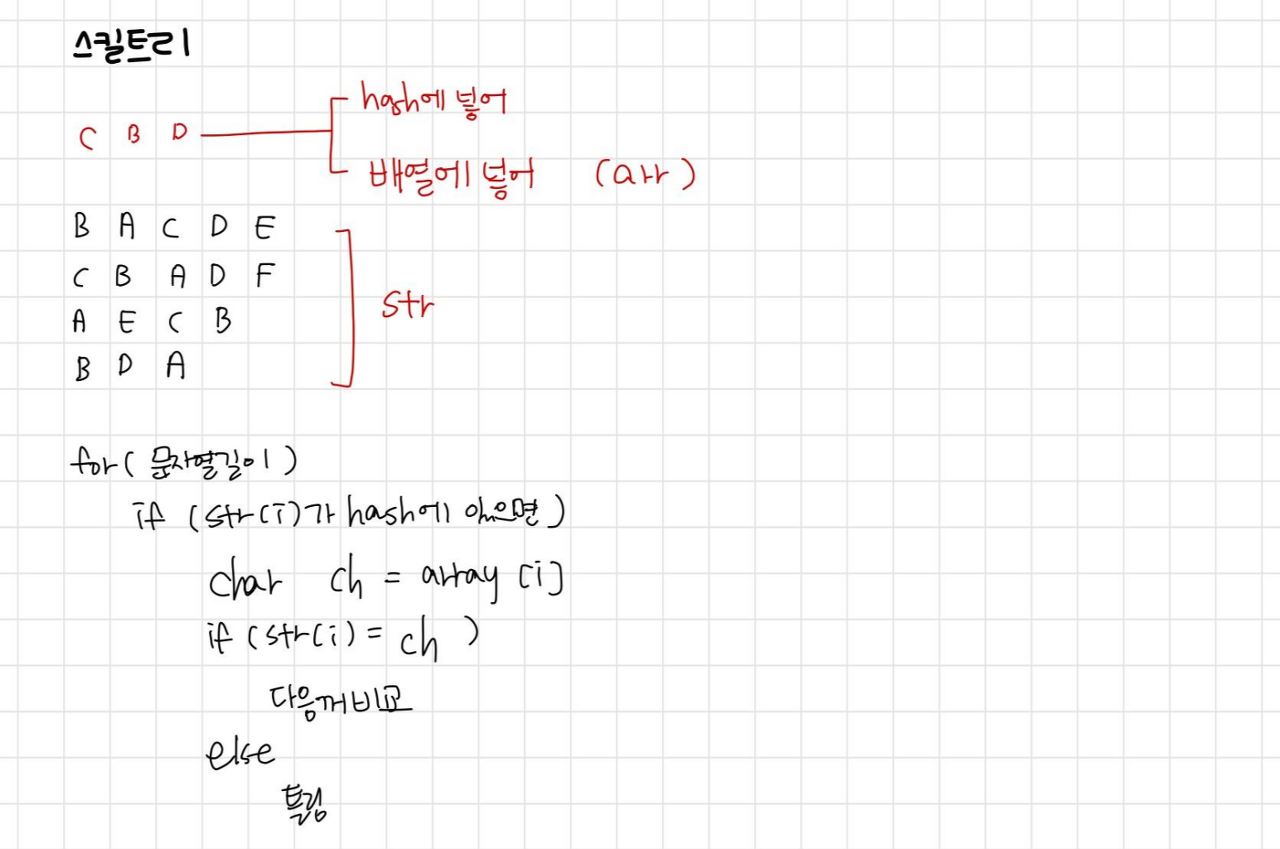 스킬트리
hash에 넣어
C B D
배열에 넣어 (arr)
B A C D E
C B A D F
str
A E C B
B D A
for( 문자열길이 )
if (str(i)가 hash에 있으면)
char ch = array [i]
if (str(i) = ch )
다음꺼비교
else
틀림